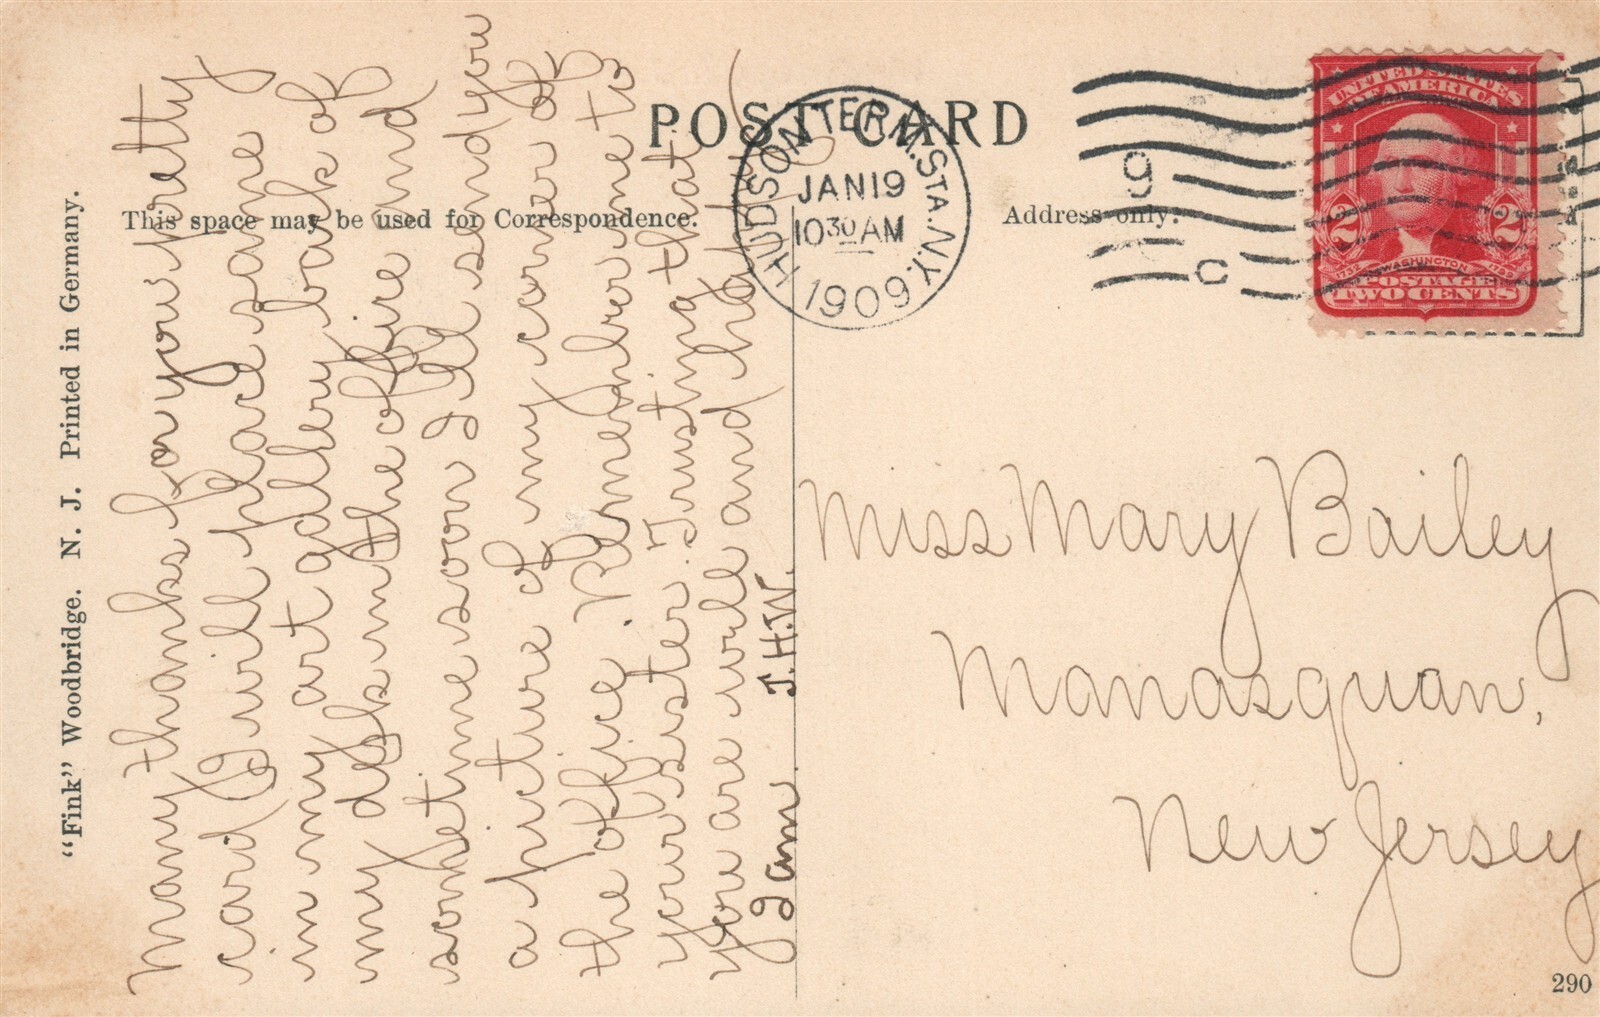 POST CARD
This space may be used for Correspondence.
Address only:
"Fink" Woodbridge. N. J. Printed in Germany.
HUDSON TERM. STA. N.Y.
JAN 19
10 30 AM
1909
9
C
UNITED STATES
OF AMERICA
2 2
1732 WASHINGTON 1799
POSTAGE
TWO CENTS
Many thanks for your pretty
card I will place same
in my art gallery back of
my desk in the office and
sometime soon I'll send you
a picture of my corner of
the office. Remember me to
your sister. Trusting that
you are well and happy
I am. J.H.W.
Miss Mary Bailey
Manasquan,
New Jersey
290